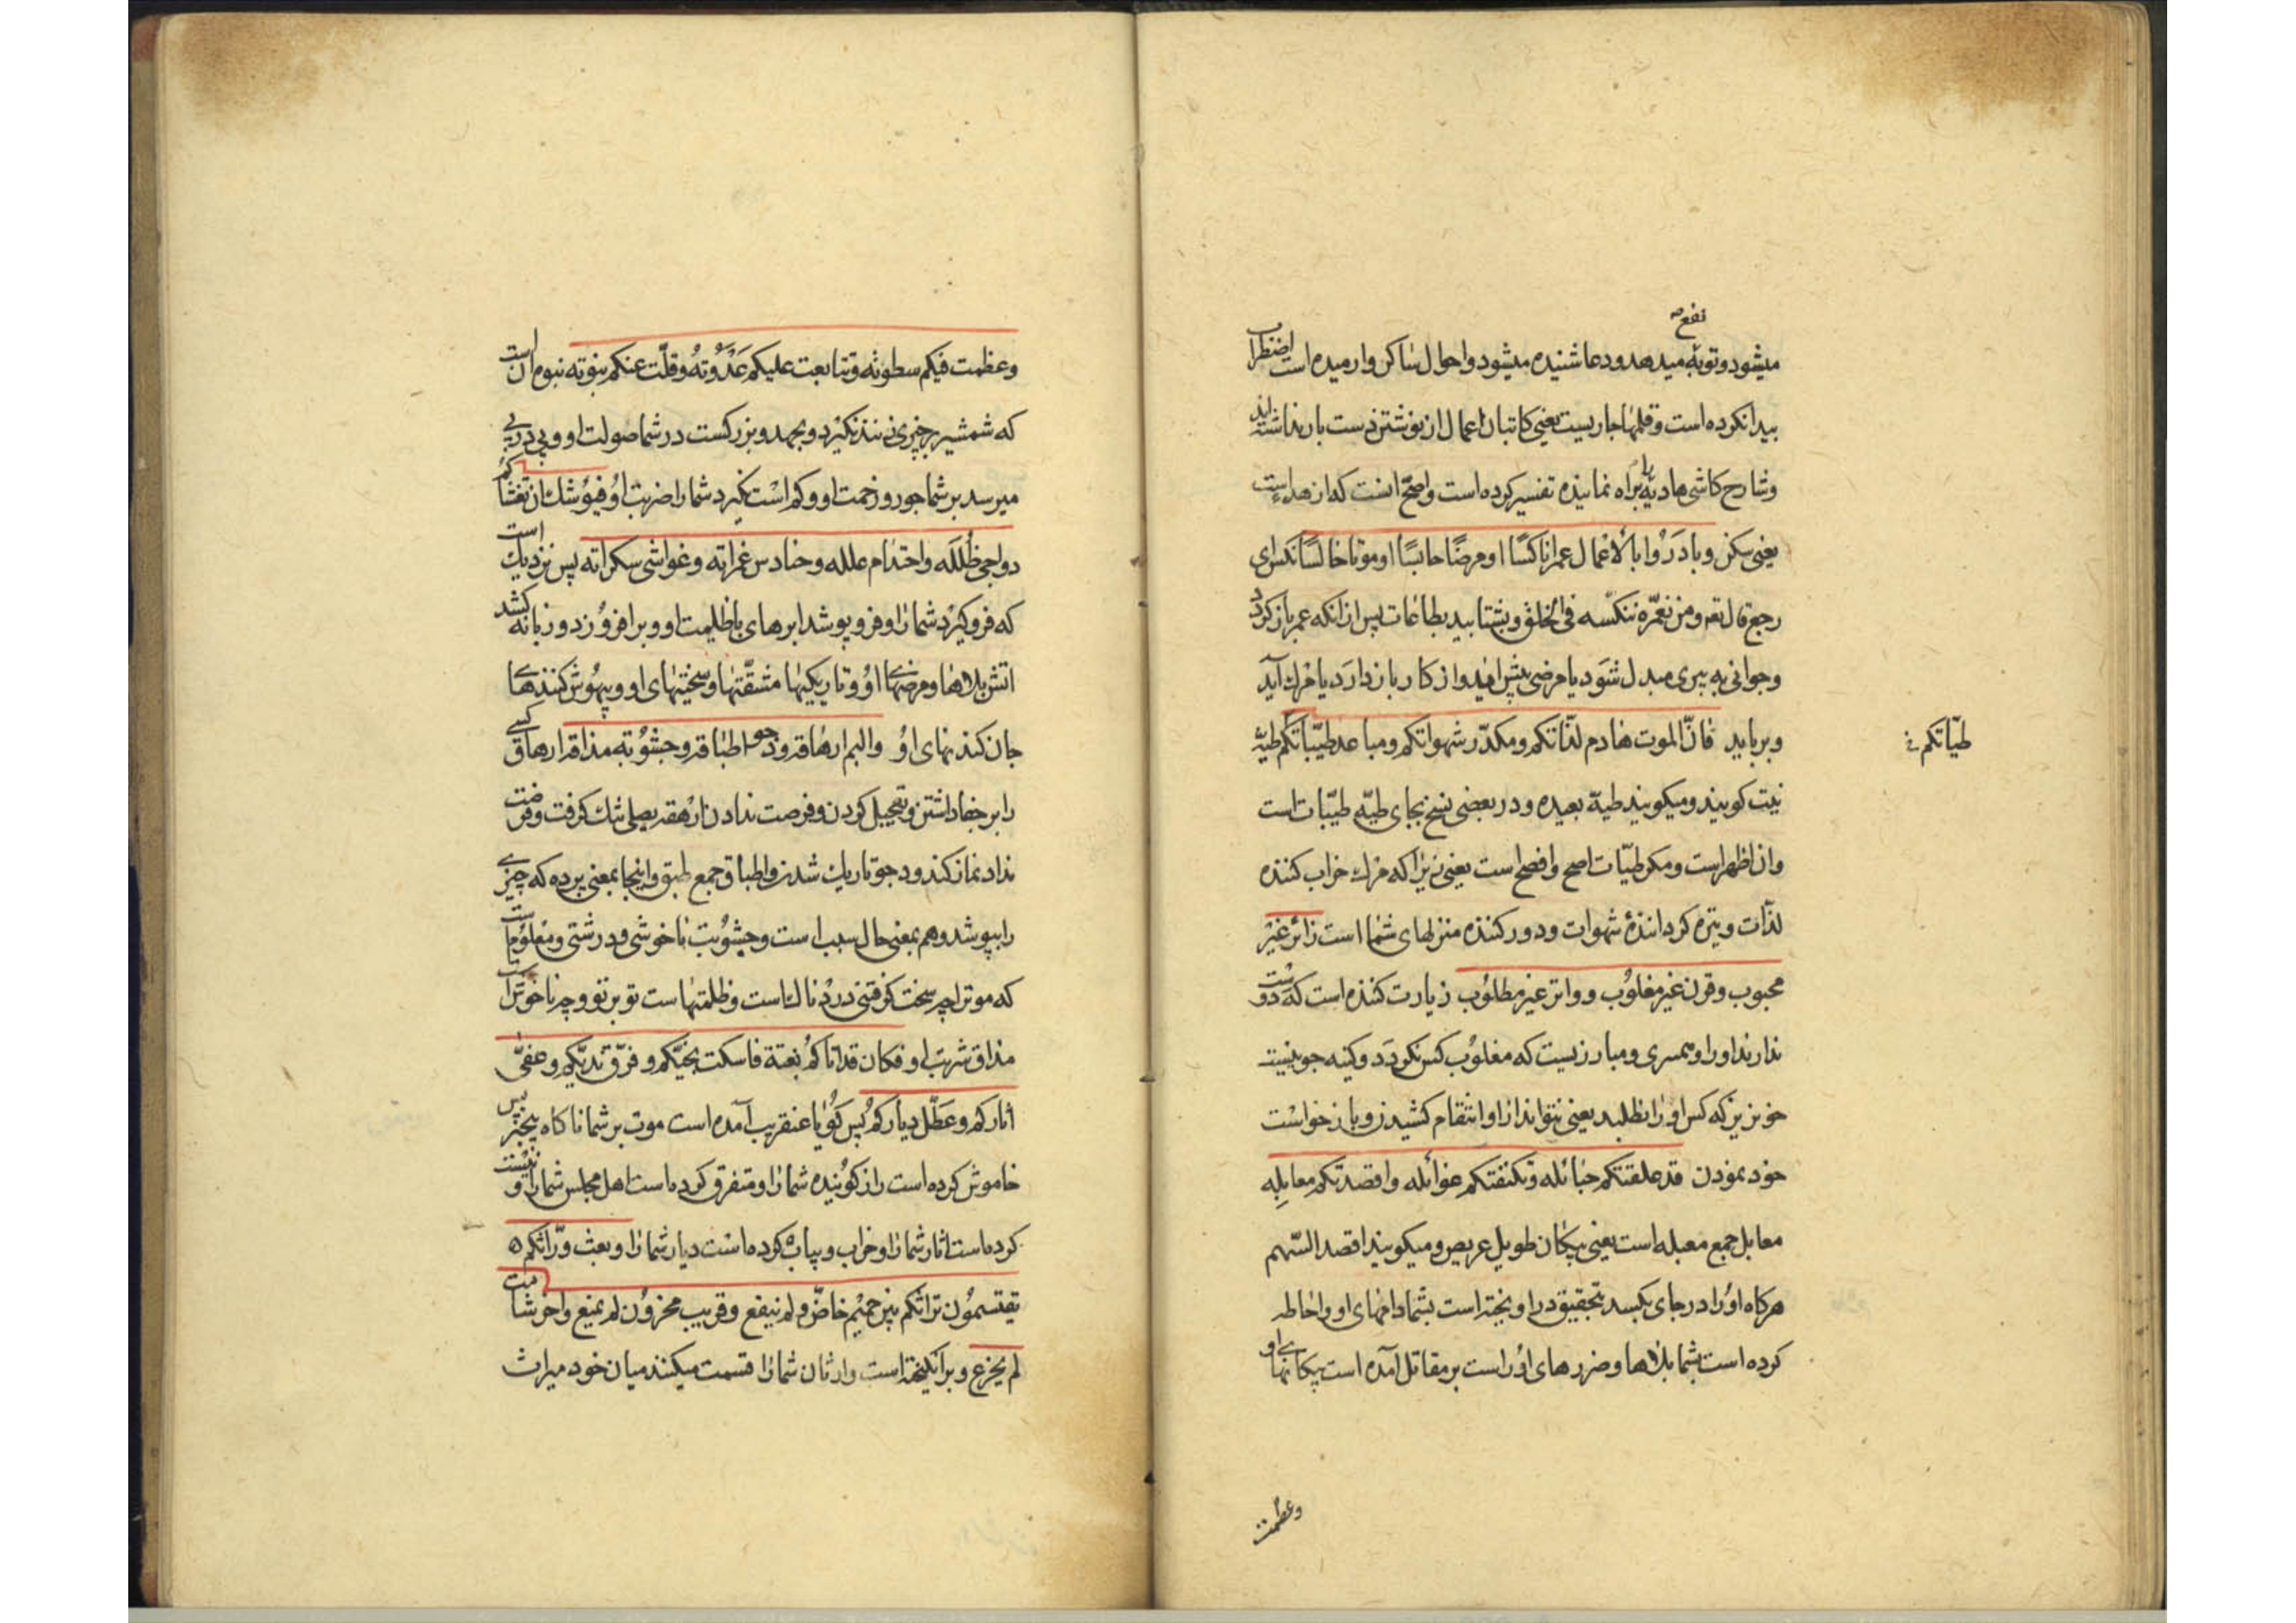 نفع
میشود و توبه میدهد و دعا شنیده میشود و احوال ساکن و ارمیده است اضطراب
پیدا نکرده است و قلمها جاریست یعنی کاتبان اعمال از نوشتن دست باز نداشته اند
و شارح کاشی هادیه را براه نماینده تفسیر کرده است و اصحّ انست که از هدء است
یعنی سکن و بادَرُوا بالأعمال عمرا ناکسًا او مرضًا حابسًا او موتا خالسًا نکس ای
رجع قال تعه و من نعمّره ننکّسه فی الخلق و بشتابید بطاعات پس از انکه عمر باز کردد
و جوانی به پیری مبدل شَود یا مرضی پیش اید و از کار باز دارَد یا مرك آید
و برباید فانّ الموت هادم لذّاتکم و مکدّر شهواتکم و مباعد طیّباتکم طیّه
طیّاتکم
نیت کویند و میکویند طیة بعیده و در بعضی نسخ بجای طیّه طیّبات است
و ان اظهر است و مکر طیّات اصح و افصح است یعنی زیرا که مرك خراب کننده
لذّات و تیره کردانندهٔ شهوات و دور کننده منزلهای شما است زائر غیر
محبوب و قرن غیر مغلوُب و واتر غیر مطلوُب زیارت کننده است که دوست
ندارند او را و همسری و مبارزیست که مغلوُب کس نکردَد و کینه جوییست
خونریز که کس او را نطلبد یعنی نتواند از او انتقام کشیدن و باز خواست
خود نمودن قد علقتکم حبائله و تکنفتکم غوائله و اقصدتکم معابِله
معابل جمع معبله است یعنی پیکان طویل عریض و میکویند اقصد السّهم
هرکاه اوُ را در جای بکسد بتحقیق در اویخته است بشما دامهای او و احاطه
کرده است بشما بلاها و ضررهای اوُ راست بر مقاتل آمده است پیکانهای او
وعظمت
و عظمت فیکم سطوته و تتابعت علیکم عَدْوَتهُ و قلّت عنکم نبوته نبوه ان است
که شمشیر بر چیزی زنند نکیرد و بجهد و بزرکست در شما صولت او و پی در پی
میرسد بر شما جور و زحمت او و کم است نکیرد شما را ضربت اوُ فیوُشك ان تغشاکم
دواجی ظُلَلَه و احتدام علله و حنادس غمراته و غواشی سکراته پس نزدیك است
که فرو کیرد شما را و فرو پوشد ابرهای باظلیمت او و برافروُزد و زبانه کشد
اتش بلاها و مرضهای اوُ و تاریکیها مشقّتها و سختیهای او و بیهوُش کنندها
جان کندنهای اوُ و الیم ارهاقه و دجو اطباقه و جشوُبة مذاقه ارهاق کسی
را بر جفا داشتن و تعجیل کردن و فرصت ندادن ارهقه یصلی تنك کرفت و فرصت
نداد نماز کند و دجو تاریك شدن و اطباق جمع طبق و اینجا بمعنی پرده که چیزی
را بپوشد و هم بمعنی حال سبب است و جشوُبت ناخوشی و درشتی و معلوُمست
که موت را چه سخت کرفتنی دردْناك است و ظلمتهاست تو بر تو و چه ناخوشست
مذاق شربت او فکان قد اتاکمُ بغتة فاسکت نجیّکم و فرّق ندیّکم و عفّی
اثارکم و عَطّل دیارکم پس کوُیا عنقریب آمده است موت بر شما ناکاه بیخبر پس
خاموش کرده است راز کوُینده شما را و متفرق کرده است اهل مجلس شما را و نیست
کرده است اثار شما را و خراب و بیاب کرده است دیار شما را و بعث ورّاثکم
یقتسموُن تراثکم بین حمیم خاصّ و لم ینفع و قریب محزوُن لم یمنع و اخر شامت
لم یجزع و برانکیخته است وارثان شما را قسمت میکنند میان خود میراث